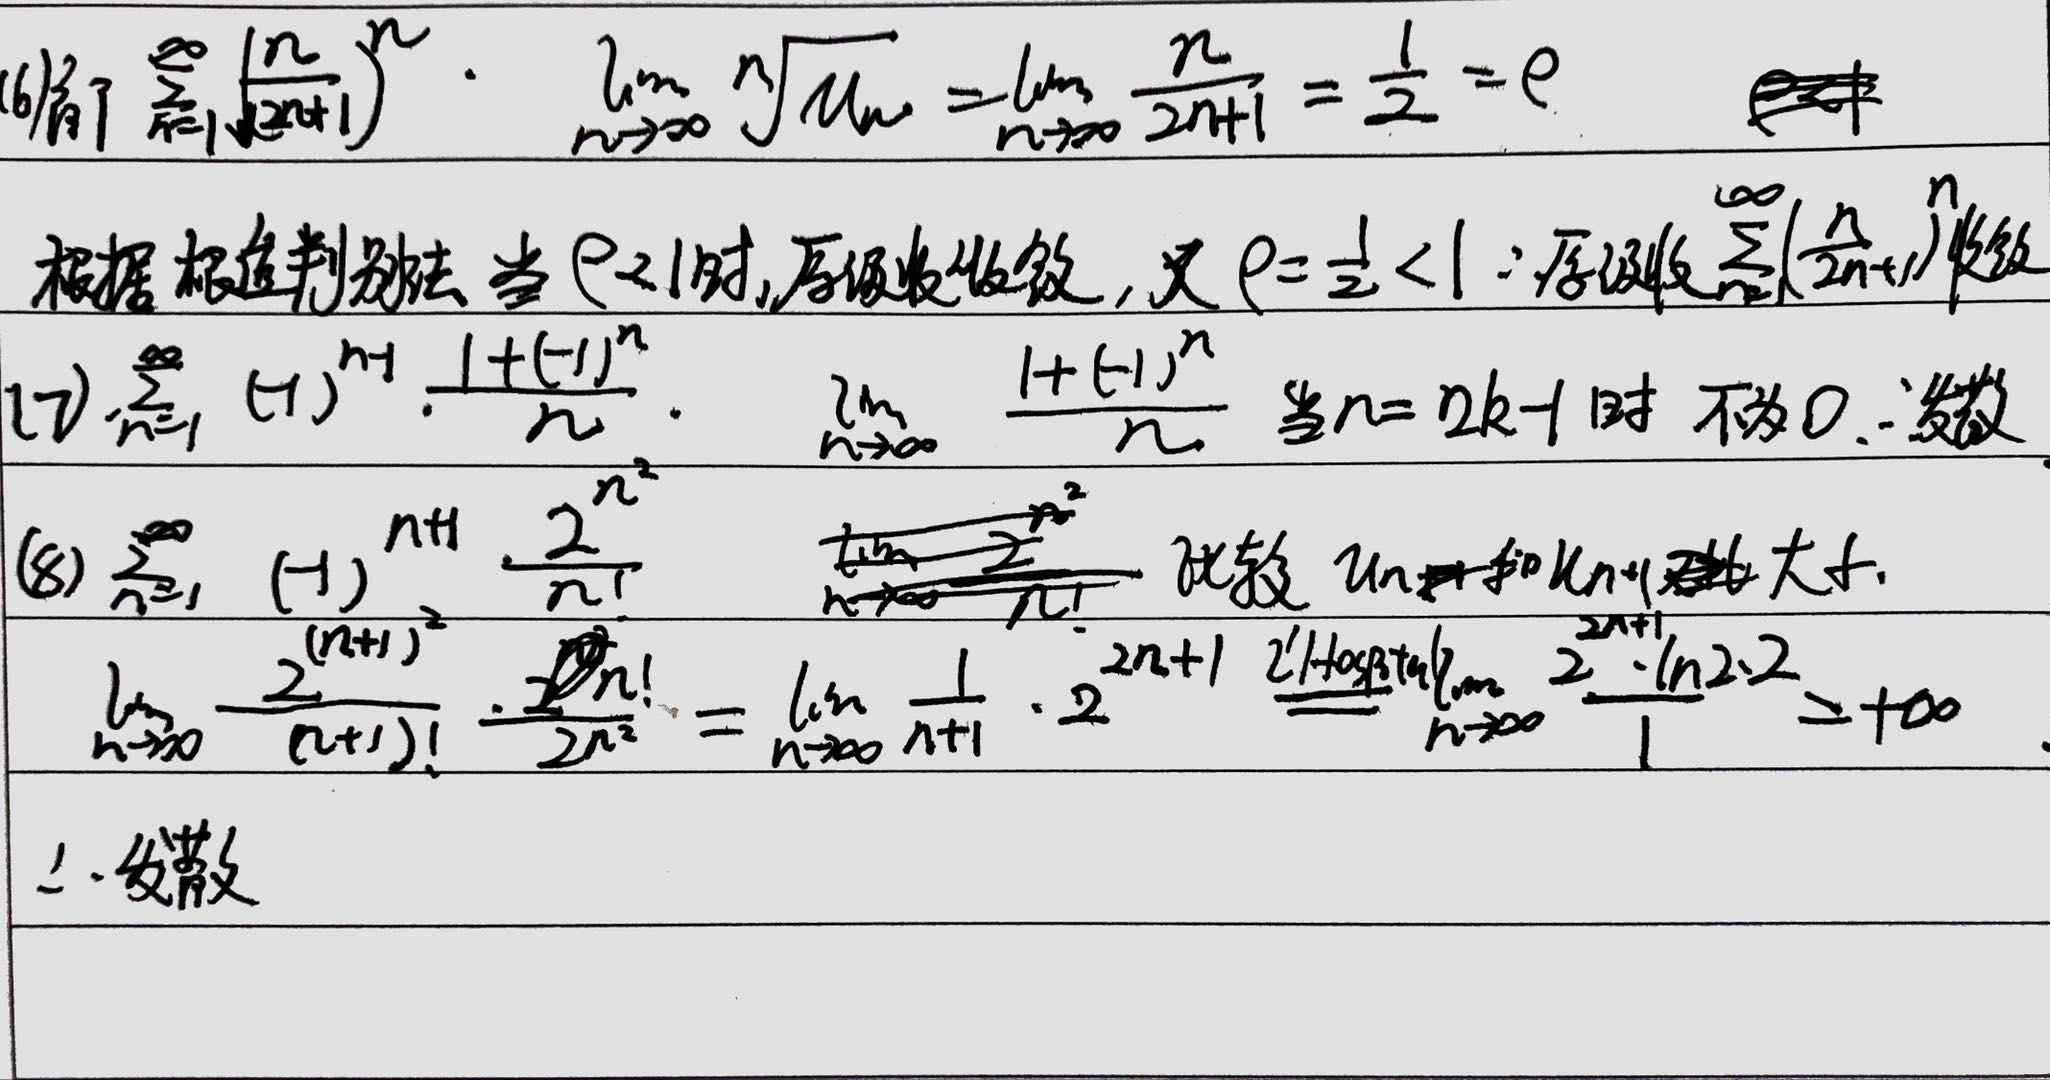 (6) 解 \sum_{n=1}^{\infty} \left(\frac{n}{2n+1}\right)^n . \lim_{n\to\infty} \sqrt[n]{u_n} = \lim_{n\to\infty} \frac{n}{2n+1} = \frac{1}{2} = ρ
根据根值判别法 当 ρ<1时,原级收收敛, 又 ρ=\frac{1}{2}<1 ∴原级收 \sum_{n=1}^{\infty} \left(\frac{n}{2n+1}\right)^n 收敛
(7) \sum_{n=1}^{\infty} (-1)^{n-1} \cdot \frac{1+(-1)^n}{n} . \lim_{n\to\infty} \frac{1+(-1)^n}{n} 当n=2k-1时 不为0.∴发散
(8) \sum_{n=1}^{\infty} (-1)^{n+1} \cdot \frac{2^{n^2}}{n!} 比较 u_n 和 u_{n+1} 大小.
\lim_{n\to\infty} \frac{2^{(n+1)^2}}{(n+1)!} \cdot \frac{n!}{2^{n^2}} = \lim_{n\to\infty} \frac{1}{n+1} \cdot 2^{2n+1} \overset{L'Hospital}{=} \lim_{n\to\infty} \frac{2^{2n+1} \cdot \ln2 \cdot 2}{1} = +\infty
∴发散